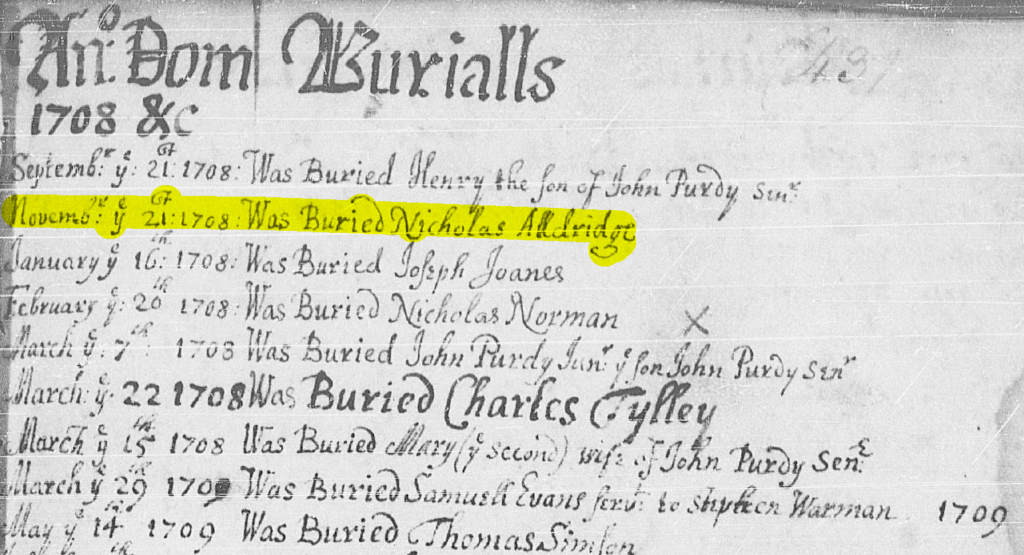 An:o Dom Burialls
1708 &c
Septembr: ye: 21:st 1708: Was Buried Henry the son of John Purdy Senr
Novembr: ye 21:st 1708: Was Buried Nicholas Alldridge
January ye 16:th 1708: Was Buried Joseph Joanes
February ye: 20th 1708: Was Buried Nicholas Norman
March ye: 7th: 1708 Was Buried John Purdy Junr: ye son John Purdy Senr
March: ye: 22 1708 Was Buried Charles Tylley
March ye 15th 1708 Was Buried Mary (ye second) wife of John Purdy Senr:
March ye 29th 1709 Was Buried Samuell Evans servt: to Stephen Warman 1709
May ye 14th 1709 Was Buried Thomas Simson